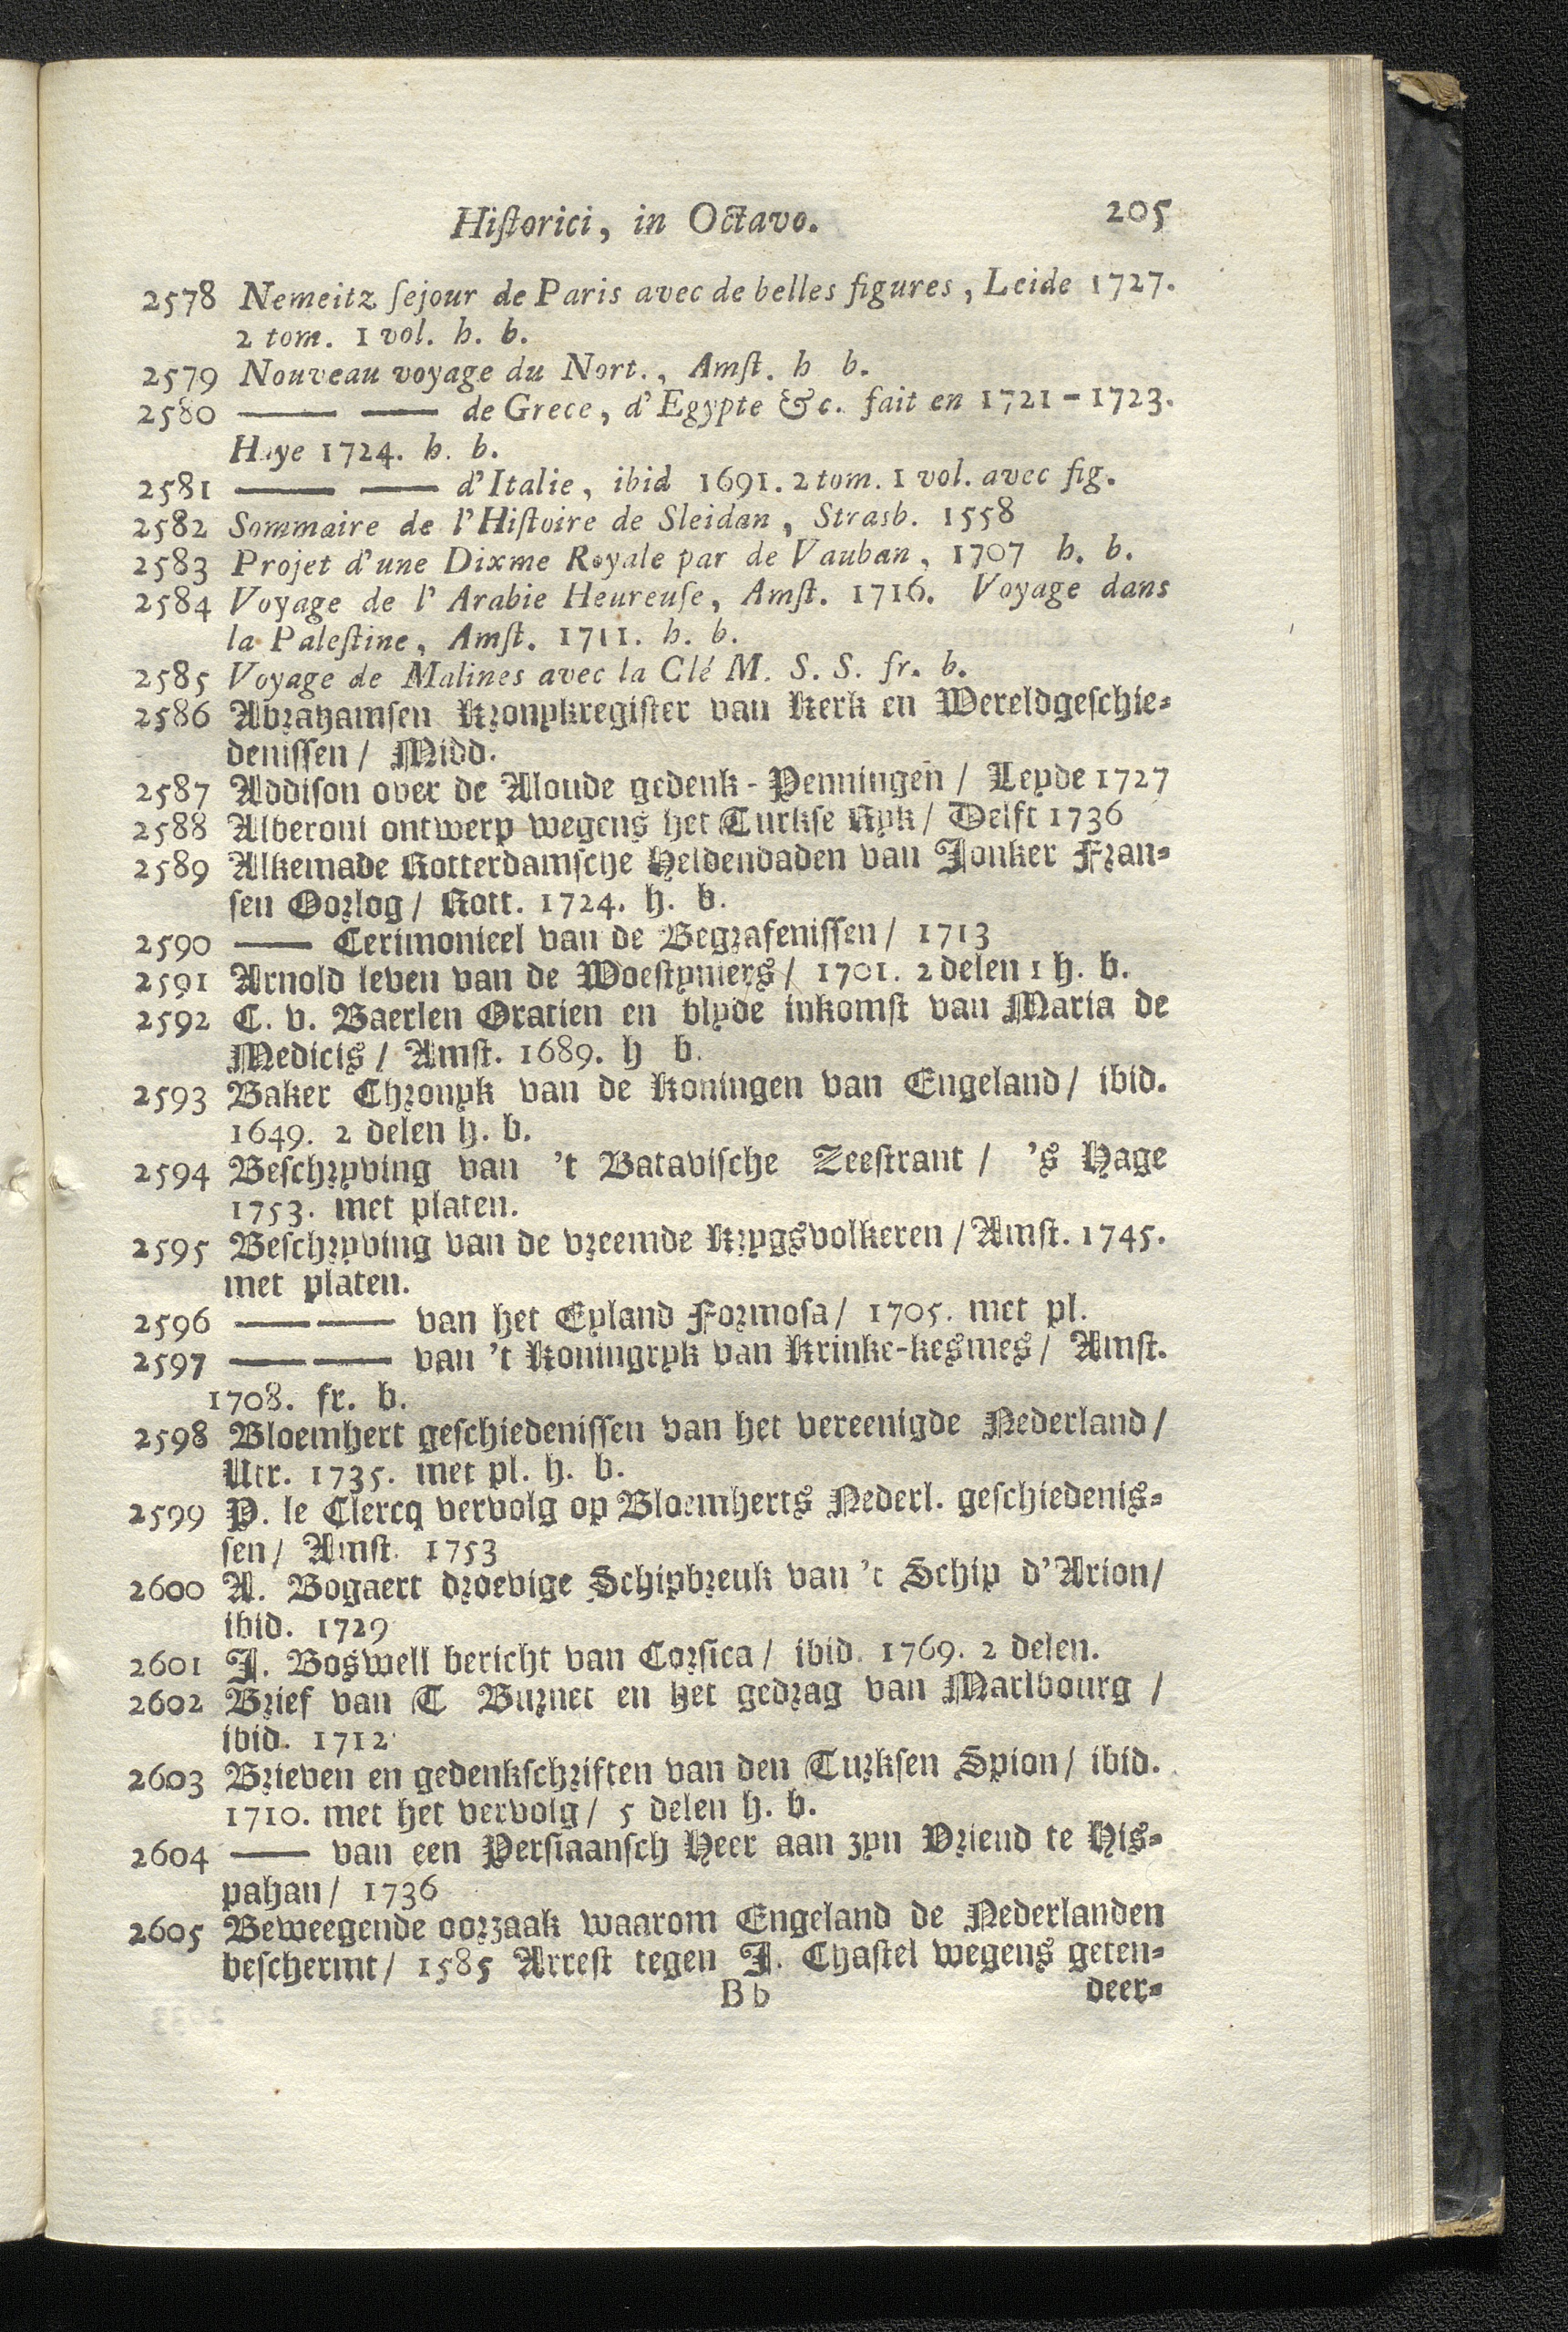 Hiſtorici, in Octavo. 205
2578 Nemeitz ſejour de Paris avec de belles figures, Leide 1727.
2 tom. 1 vol. h. b.
2579 Nouveau voyage du Nort., Amſt. h b.
2580 —— —— de Grece, d'Egypte &c. fait en 1721-1723.
Haye 1724. h. b.
2581 —— —— d'Italie, ibid 1691. 2 tom. 1 vol. avec fig.
2582 Sommaire de l'Hiſtoire de Sleidan, Strasb. 1558
2583 Projet d'une Dixme Royale par de Vauban, 1707 h. b.
2584 Voyage de l'Arabie Heureuſe, Amſt. 1716. Voyage dans
la Paleſtine, Amſt. 1711. h. b.
2585 Voyage de Malines avec la Clé M. S. S. fr. b.
2586 Abrahamſen Kronykregiſter van Kerk en Wereldgeſchie-
deniſſen / Midd.
2587 Addiſon over de Aloude gedenk-Penningen / Leyde 1727
2588 Alberoni ontwerp wegens het Turkſe Ryk / Delft 1736
2589 Alkemade Rotterdamſche Heldendaden van Jonker Fran-
ſen Oorlog / Rott. 1724. h. b.
2590 —— Cerimonieel van de Begrafeniſſen / 1713
2591 Arnold leven van de Woeſtyniers / 1701. 2 delen 1 h. b.
2592 C. v. Baerlen Oratien en blyde inkomſt van Maria de
Medicis / Amſt. 1689. h b.
2593 Baker Chronyk van de Koningen van Engeland / ibid.
1649. 2 delen h. b.
2594 Beſchryving van 't Bataviſche Zeeſtrant / 's Hage
1753. met platen.
2595 Beſchryving van de vreemde Krygsvolkeren / Amſt. 1745.
met platen.
2596 —— —— van het Eyland Formoſa / 1705. met pl.
2597 —— —— van 't Koningryk van Krinke-kesmes / Amſt.
1708. fr. b.
2598 Bloemhert geſchiedeniſſen van het vereenigde Nederland /
Utr. 1735. met pl. h. b.
2599 P. le Clercq vervolg op Bloemherts Nederl. geſchiedenis-
ſen / Amſt. 1753
2600 A. Bogaert droevige Schipbreuk van 't Schip d'Arion /
ibid. 1729
2601 J. Boswell bericht van Corſica / ibid. 1769. 2 delen.
2602 Brief van C Burnet en het gedrag van Marlbourg /
ibid. 1712
2603 Brieven en gedenkſchriften van den Turkſen Spion / ibid.
1710. met het vervolg / 5 delen h. b.
2604 —— van een Perſiaanſch Heer aan zyn Vriend te His-
pahan / 1736
2605 Beweegende oorzaak waarom Engeland de Nederlanden
beſchermt / 1585 Arreſt tegen J. Chaſtel wegens geten-
Bb deer-